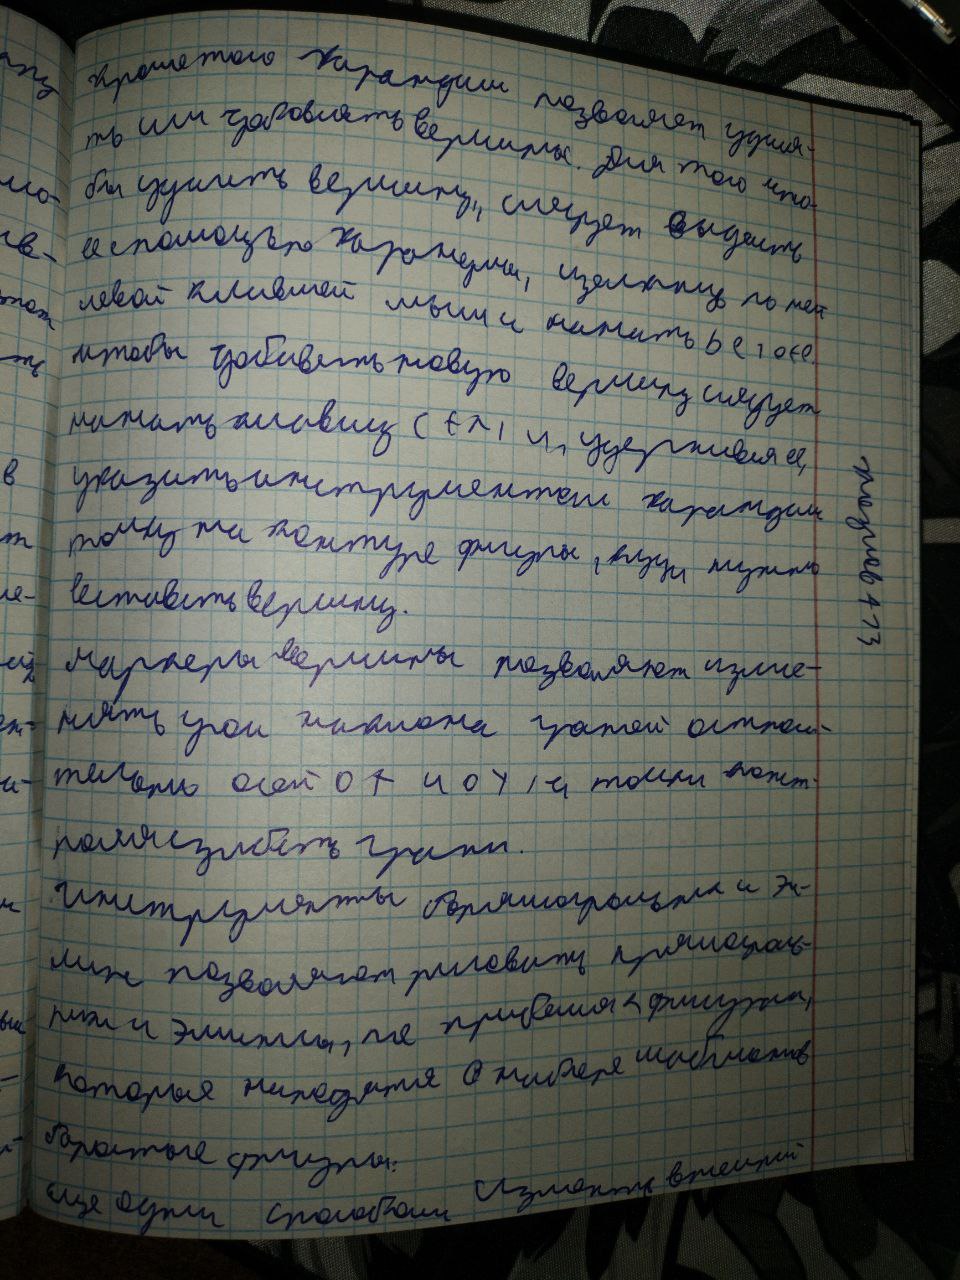 Кроме того Карандаш позволяет удаля-
ть или добавлять вершины. Для того что-
бы удалить вершину, следует выделить
ее с помощью Карандаша, щелкнув по ней
левой клавишей мыши и нажать
чтобы добавить новую вершину следует
нажать клавишу Ctrl и, удерживая,
указать инструментом карандаш
точку на контуре фигуры, куда нужно
вставить вершину.
Маркеры вершины позволяют изме-
нять угол наклона граней относи-
тельно осей OX и OY, а точки конт-
роля изгибать грани.
Инструменты Прямоугольник и Эл-
липс позволяют рисовать прямоуголь-
ники и эллипсы, не прибегая к фигурам,
которые находятся в наборе шаблонов
Простые фигуры.
еще одним способом изменить внешний